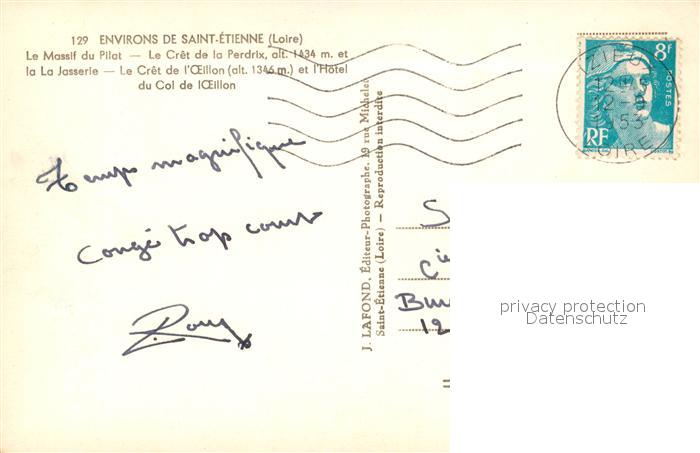 129 ENVIRONS DE SAINT-ÉTIENNE (Loire)
Le Massif du Pilat — Le Crêt de la Perdrix, alt. 1434 m. et
la La Jasserie — Le Crêt de l'Œillon (alt. 1346 m.) et l'Hôtel
du Col de lŒillon
Temps magnifique
Congé trop court
J. LAFOND, Éditeur-Photographe, 19 rue Michelet
Saint-Étienne (Loire) — Reproduction interdite
8f
POSTES
RF
53
S
Cie
12
privacy protection
Datenschutz